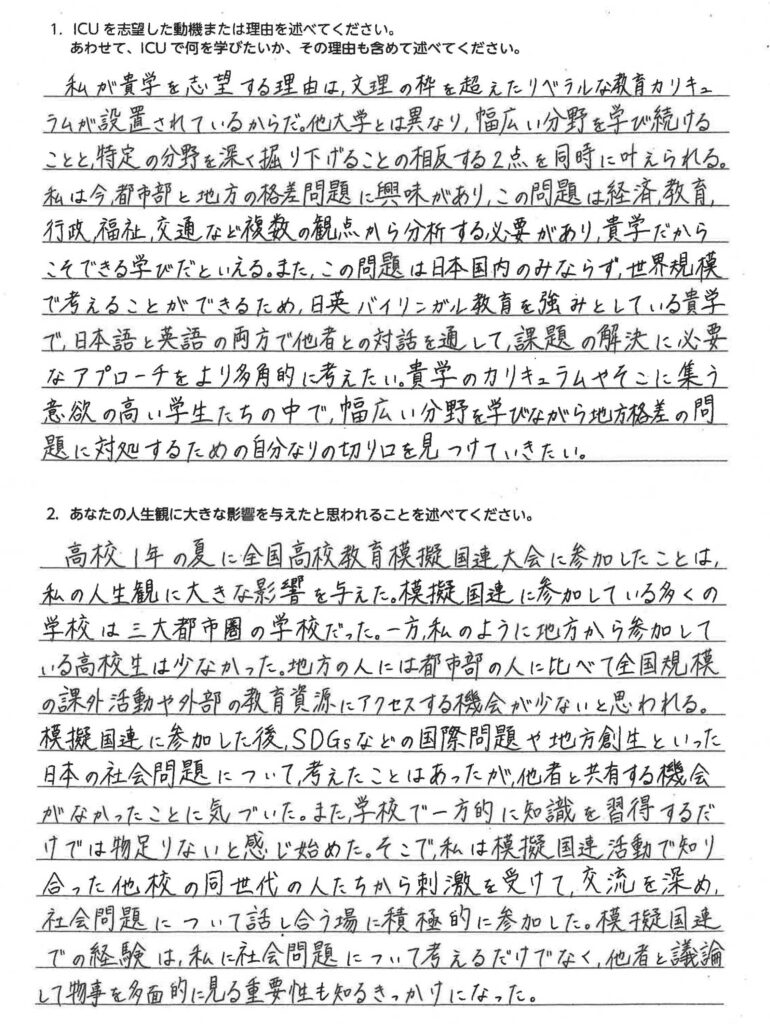 1. ICUを志望した動機または理由を述べてください。
あわせて、ICUで何を学びたいか、その理由も含めて述べてください。
私が貴学を志望する理由は,文理の枠を超えたリベラルな教育カリキュ
ラムが設置されているからだ。他大学とは異なり,幅広い分野を学び続ける
ことと,特定の分野を深く掘り下げることの相反する2点を同時に叶えられる。
私は今,都市部と地方の格差問題に興味があり,この問題は経済,教育,
行政,福祉,交通など複数の観点から分析する必要があり,貴学だから
こそできる学びだといえる。また,この問題は日本国内のみならず,世界規模
で考えることができるため,日英バイリンガル教育を強みとしている貴学
で,日本語と英語の両方で他者との対話を通して,課題の解決に必要
なアプローチをより多角的に考えたい。貴学のカリキュラムやそこに集う
意欲の高い学生たちの中で,幅広い分野を学びながら地方格差の問
題に対処するための自分なりの切り口を見つけていきたい。
2. あなたの人生観に大きな影響を与えたと思われることを述べてください。
高校1年の夏に全国高校教育模擬国連大会に参加したことは,
私の人生観に大きな影響を与えた。模擬国連に参加している多くの
学校は三大都市圏の学校だった。一方,私のように地方から参加して
いる高校生は少なかった。地方の人には都市部の人に比べて全国規模
の課外活動や外部の教育資源にアクセスする機会が少ないと思われる。
模擬国連に参加した後,SDGsなどの国際問題や地方創生といった
日本の社会問題について,考えたことはあったが,他者と共有する機会
がなかったことに気づいた。また,学校で一方的に知識を習得するだ
けでは物足りないと感じ始めた。そこで,私は模擬国連活動で知り
合った他校の同世代の人たちから刺激を受けて,交流を深め,
社会問題について話し合う場に積極的に参加した。模擬国連
での経験は,私に社会問題について考えるだけでなく,他者と議論
して物事を多面的に見る重要性も知るきっかけになった。